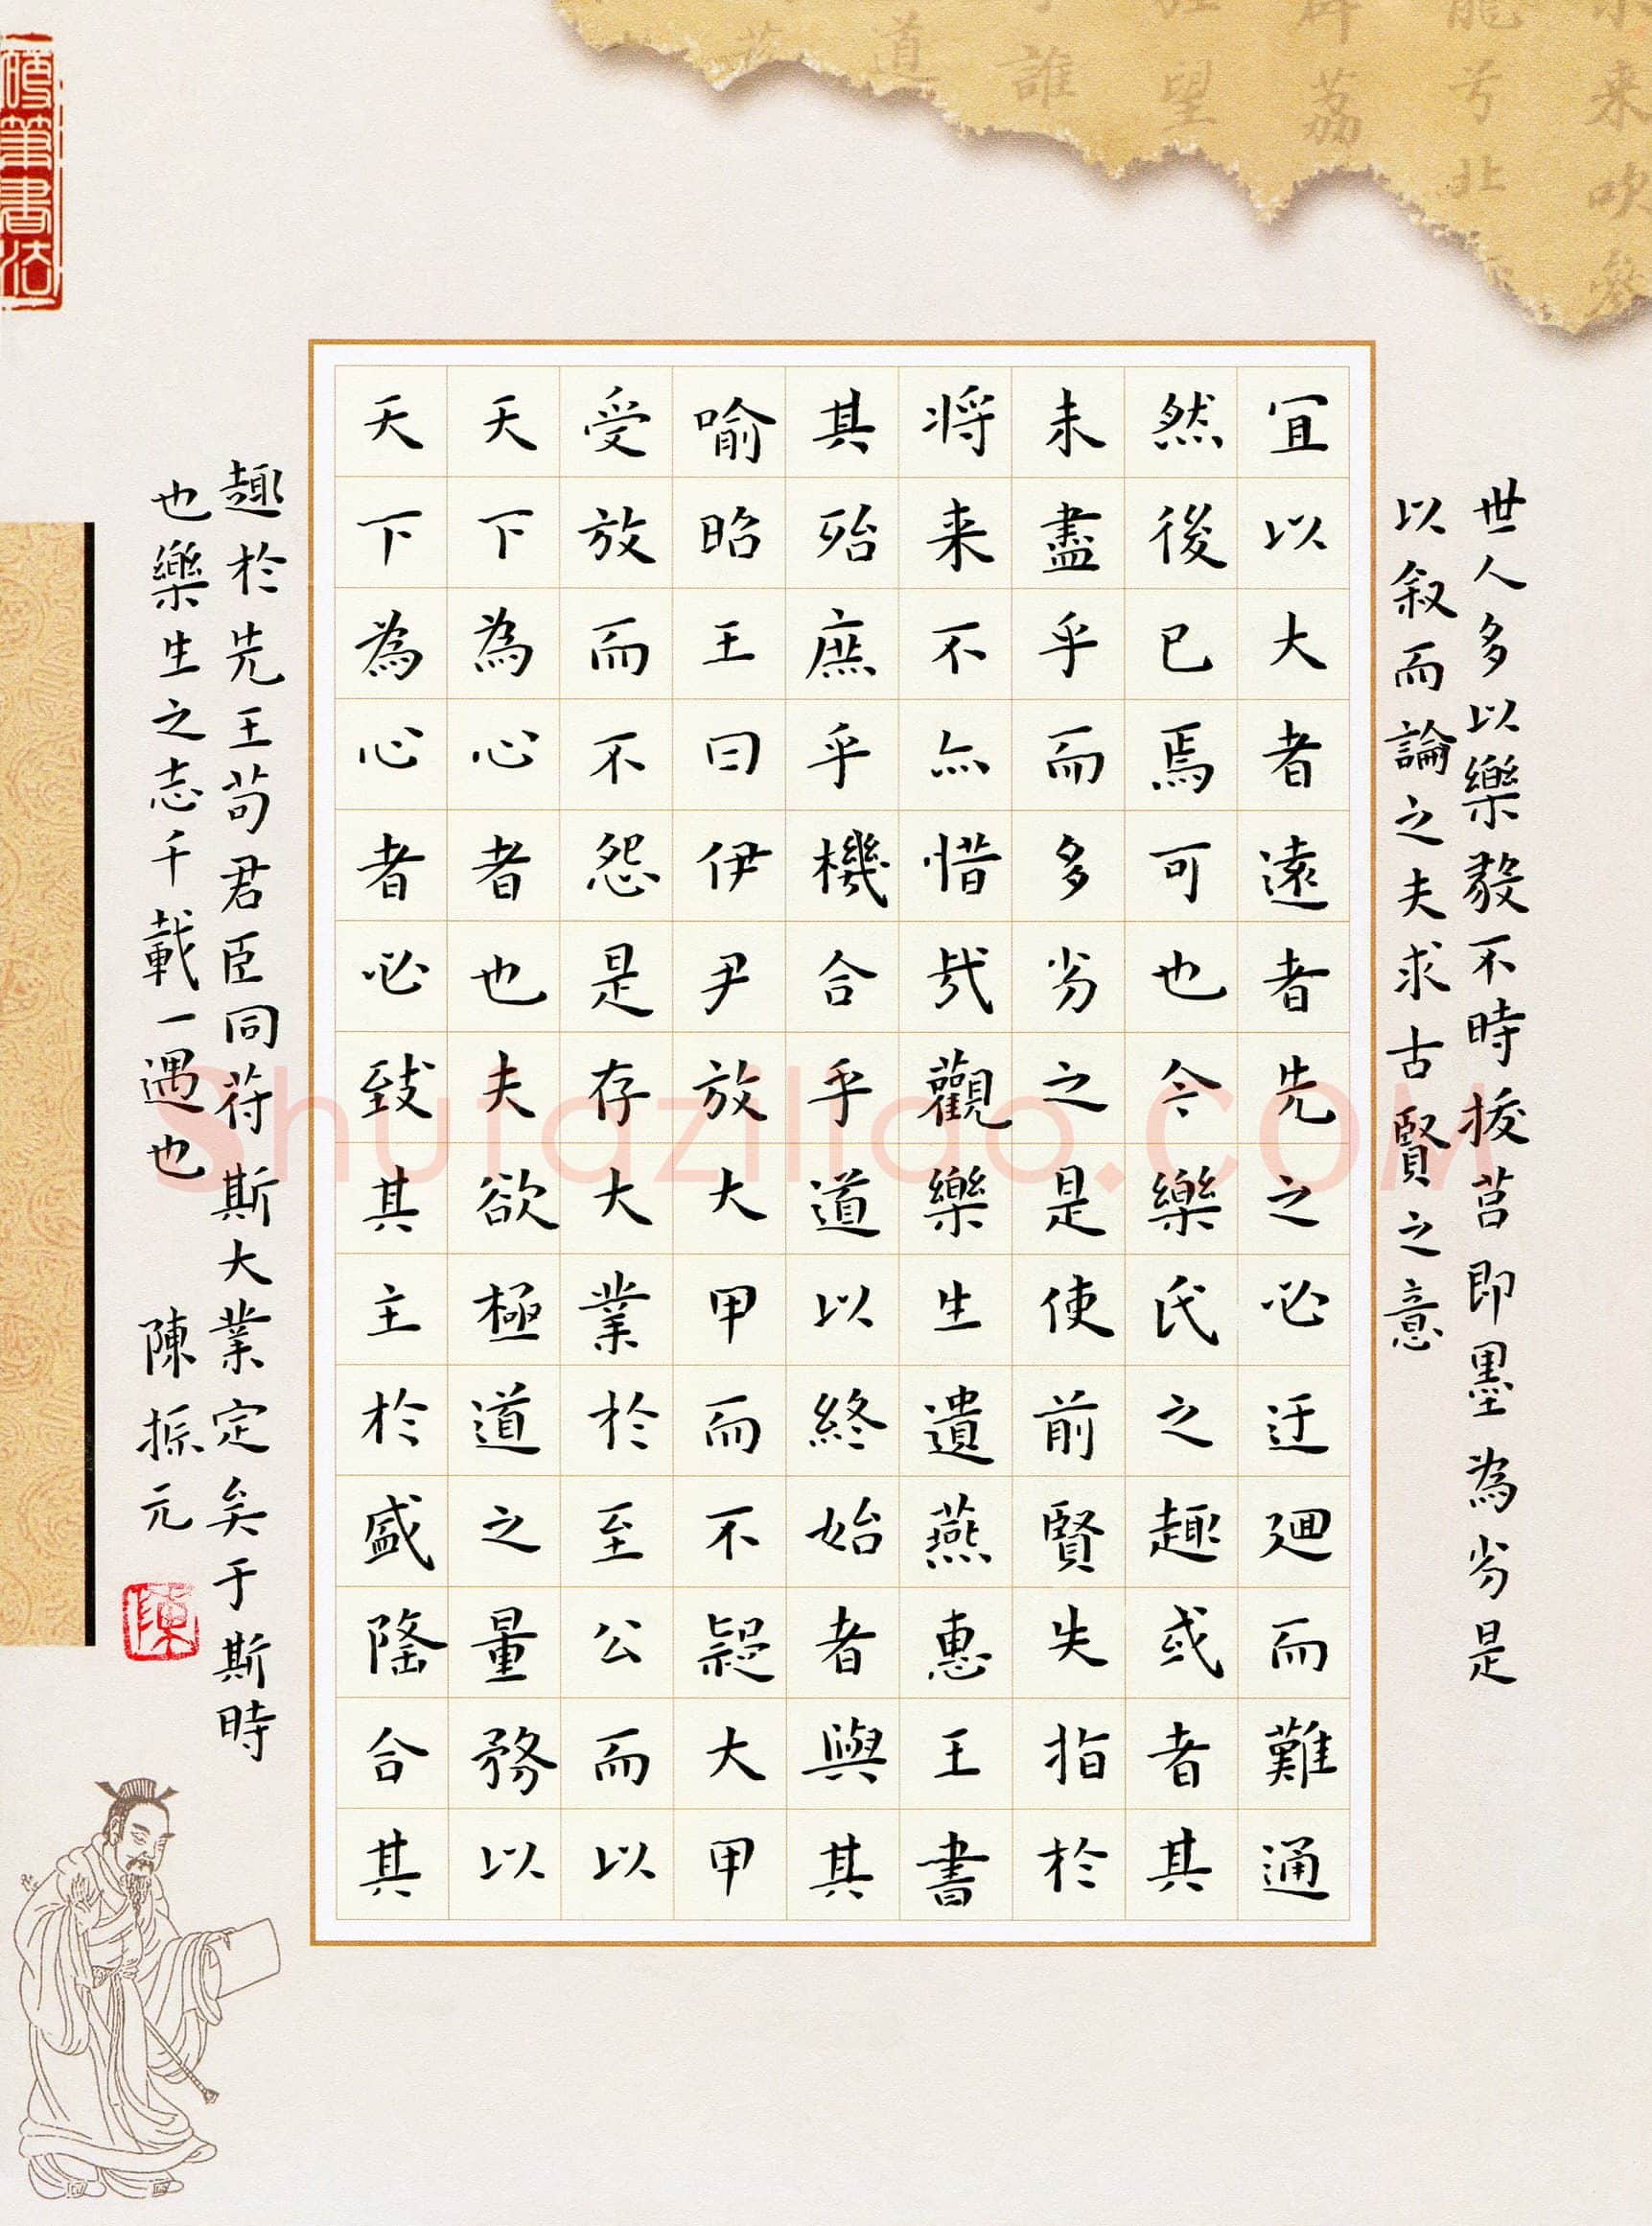 世人多以樂毅不時拔莒即墨為劣是
以叙而論之夫求古賢之意
宜以大者遠者先之必迂迴而難通
然後已焉可也今樂氏之趣或者其
未盡乎而多劣之是使前賢失指於
将来不亦惜哉觀樂生遺燕惠王書
其殆庶乎機合乎道以終始者與其
喻昭王曰伊尹放大甲而不疑大甲
受放而不怨是存大業於至公而以
天下為心者也夫欲極道之量務以
天下為心者必致其主於盛隆合其
趣於先王苟君臣同符斯大業定矣于斯時
也樂生之志千載一遇也 陳振元
陳
硬筆書法
Shufaziliao.com